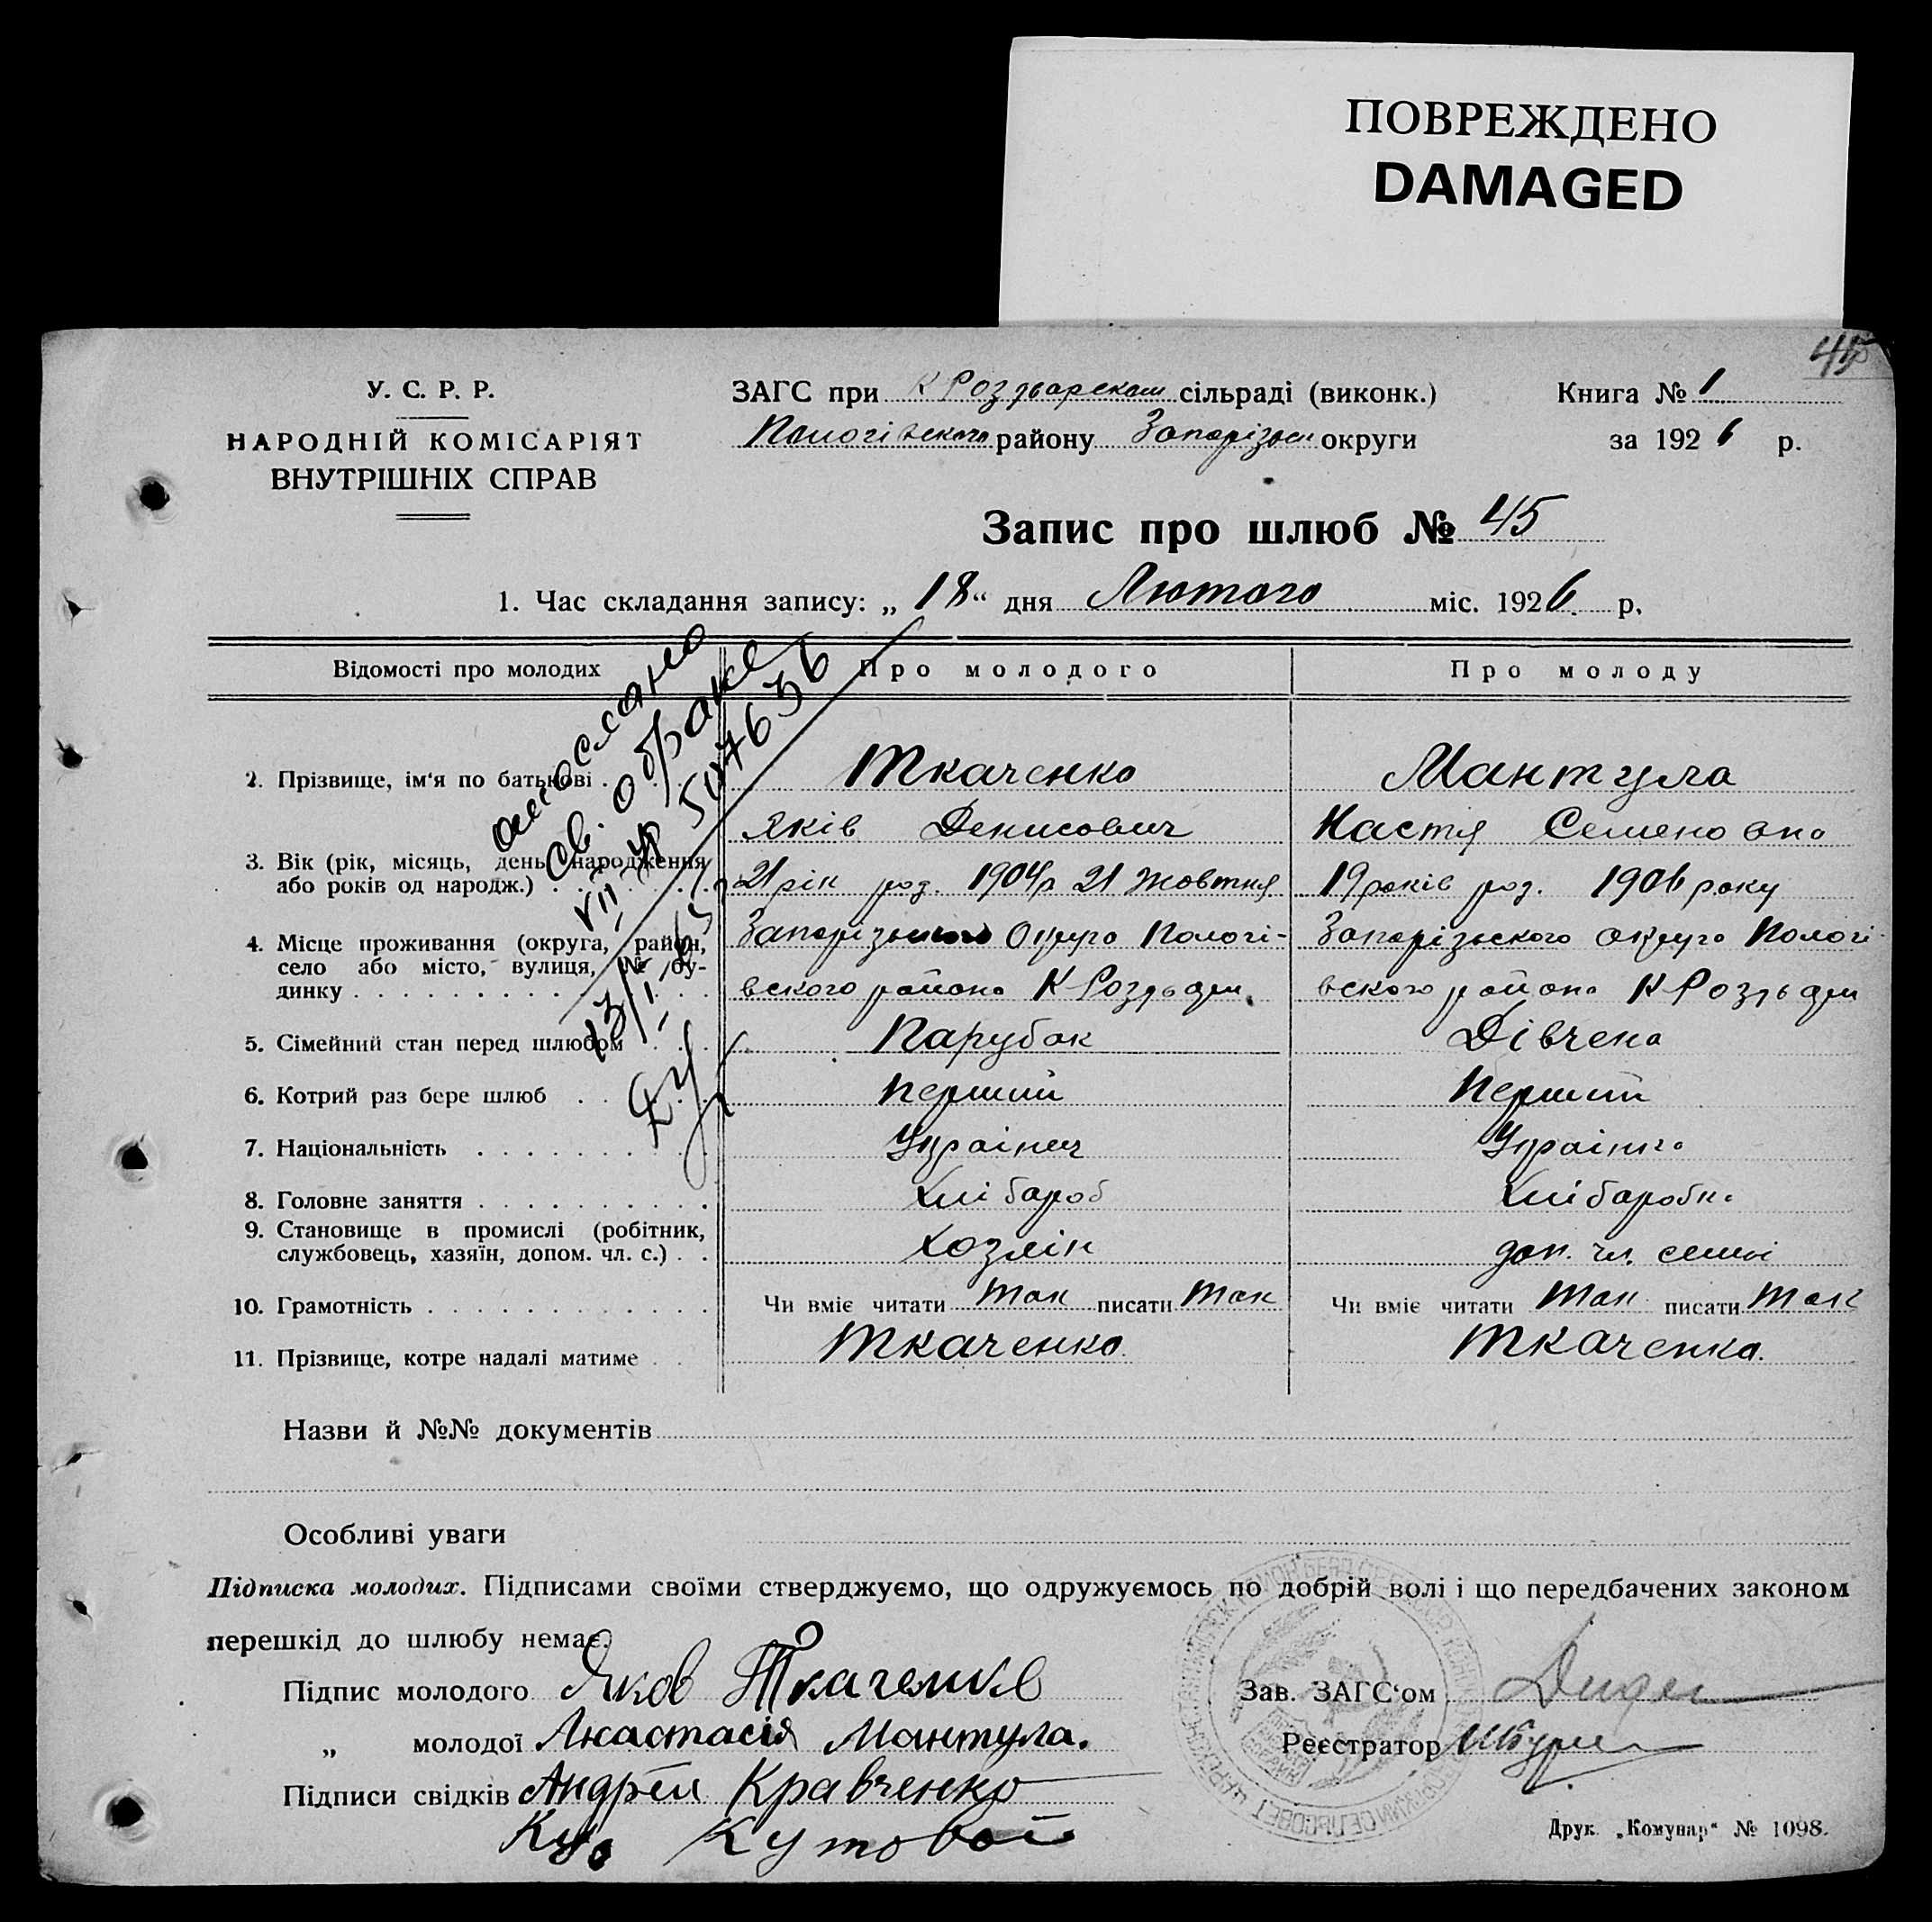 ПОВРЕЖДЕНО
DAMAGED
45
У. С. Р. Р.
НАРОДНІЙ КОМІСАРІЯТ
ВНУТРІШНІХ СПРАВ
ЗАГС при сільраді (виконк.)
Пологівского району Запорізьк округи
Книга № 1
за 1926 р.
Запис про шлюб № 45
1. Час складання запису: „18“ дня Лютого міс. 1926. р.
Відомості про молодих Про молодого Про молоду
2. Прізвище, ім‘я по батькові . Ткаченко Мантула
Яків Денисович Настя Семеновна
3. Вік (рік, місяць, день народження
або років од народж.) 21 рік род. 1904р 21 Жовтня 19 років род. 1906 року
4. Місце проживання (округа, район,
село або місто, вулиця, № бу-
динку
Запорізького Округа Пологі-
вского района К-Розд
Запорізьского округа Пологі-
вского района К-Розд
5. Сімейний стан перед шлюбом Парубак Дівчена
6. Котрий раз бере шлюб Перший Перший
7. Національність Украінец Украінка
8. Головне заняття Хлібароб Хлібаробка
9. Становище в промислі (робітник,
службовець, хазяїн, допом. чл. с.) Хозяін доп. чл. семьі
10. Грамотність Чи вміє читати Так писати Так Чи вміє читати Так писати Так
11. Прізвище, котре надалі матиме Ткаченко. Ткаченко.
св. о браке
Назви й №№ документів
Особливі уваги
Підписка молодих. Підписами своїми стверджуємо, що одружуємось по добрій волі і що передбачених законом
перешкід до шлюбу немає.
Підпис молодого Яков Ткаченко
„ молодої Анастасія Мантула.
Підписи свідків Андрей Кравченко
Кутовой
Зав. ЗАГС‘ом
Реєстратор
Друк. „Комунар“ № 1098.